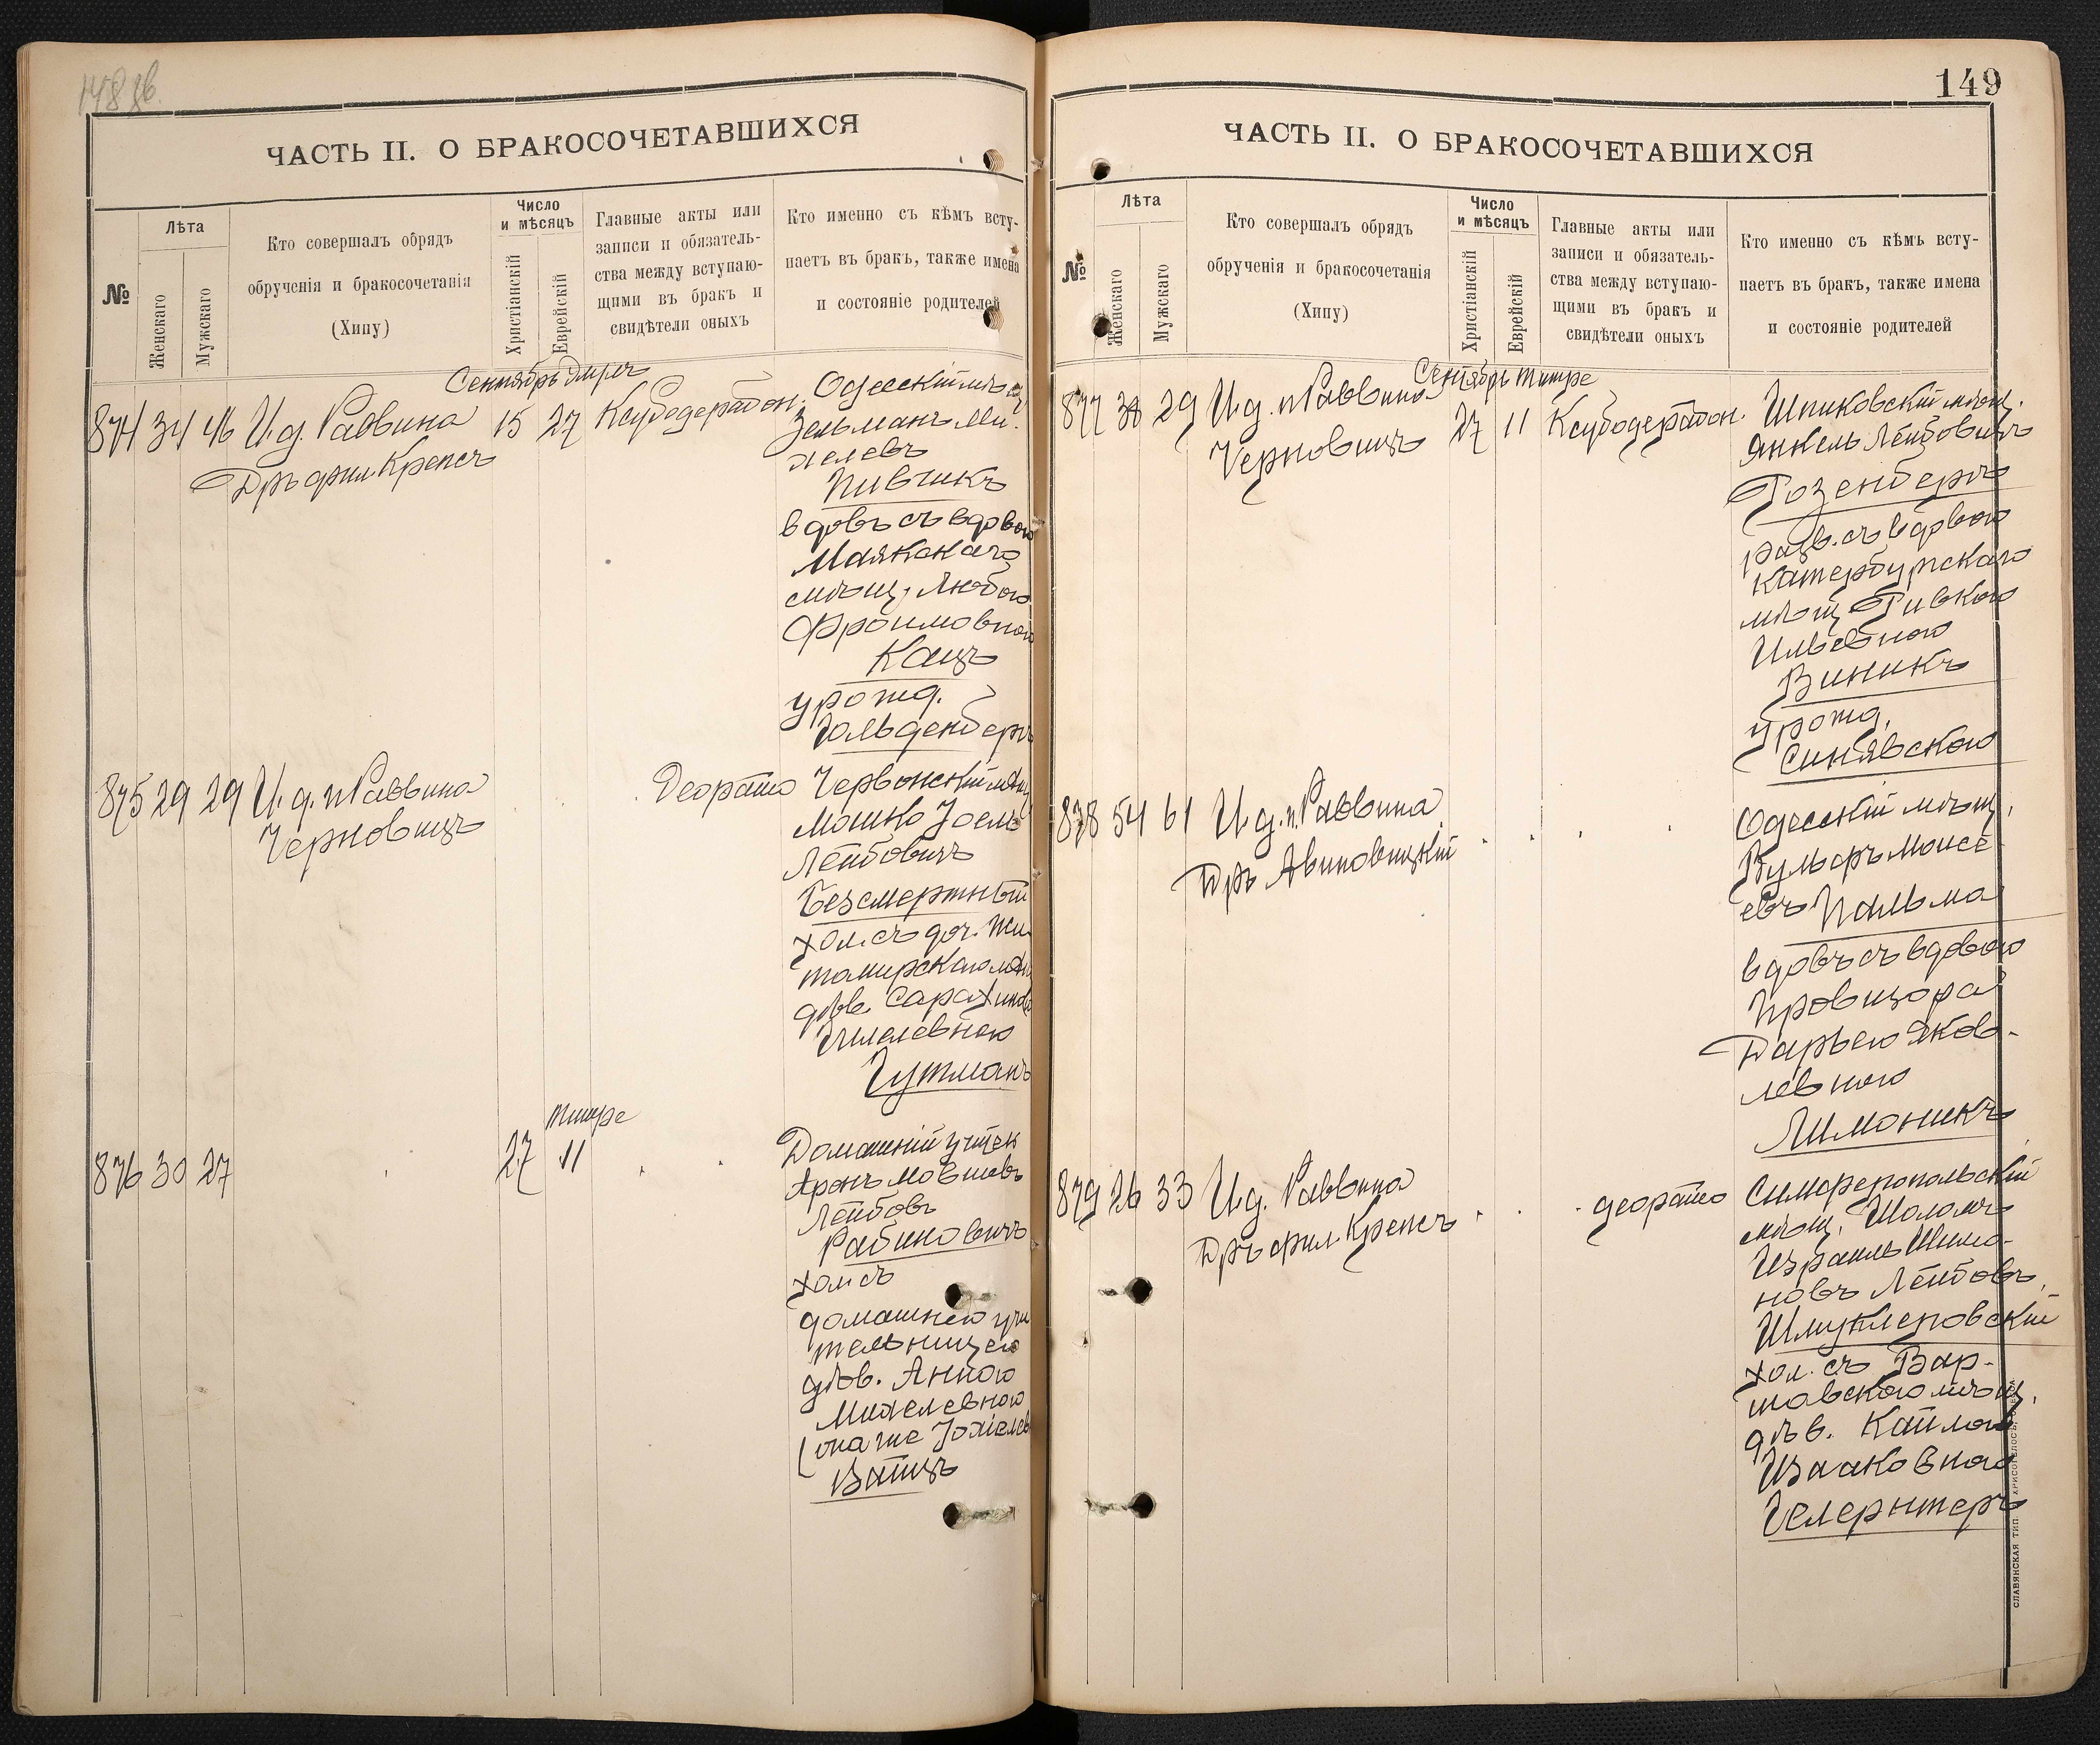 148 об.
ЧАСТЬ II. О БРАКОСОЧЕТАВШИХСЯ
№
Лѣта
Женскаго
Мужскаго
Кто совершалъ обрядъ
обрученія и бракосочетанія
(Хипу)
Число
и мѣсяцъ
Христіанскій
Еврейскій
Главные акты или
записи и обязатель-
ства между вступаю-
щими въ бракъ и
свидѣтели оныхъ
Кто именно съ кѣмъ всту-
паетъ въ бракъ, также имена
и состояніе родителей
Сентябрь Элулъ
874 34 46 И. д. Раввина 15 27 Ксубодерабон. Одесскій мѣщ
Д-ръ фил. Крепсъ
Зельманъ Ми-
хелевъ
Пивчикъ
вдовъ съ вдовою
Маякскаго
мѣщ. Любою
Фроимовною
Кацъ
урожд.
Гольденбергъ
875 29 29 И. д. п. Раввина Деорайто
Черновицъ
Червонскій мѣщ
Мошко Іосель
Лейбовичъ
Безсмертный
хол. съ доч. Жи
томирскаго мѣщ
дѣв. Сарах
Хилелевною
Гутманъ
Тишре
876 30 27 27 11
Домашній учител
Аронъ Мовшевъ
Лейбовъ
Рабиновичъ
хол. съ
домашнею учи
тельницею
дѣв. Анною
Михелевною
(она же Іохіелев
Вайцъ
149
ЧАСТЬ II. О БРАКОСОЧЕТАВШИХСЯ
№
Лѣта
Женскаго
Мужскаго
Кто совершалъ обрядъ
обрученія и бракосочетанія
(Хипу)
Число
и мѣсяцъ
Христіанскій
Еврейскій
Главные акты или
записи и обязатель-
ства между вступаю-
щими въ бракъ и
свидѣтели оныхъ
Кто именно съ кѣмъ всту-
паетъ въ бракъ, также имена
и состояніе родителей
Сентябрь Тишре
877 29 И. д. п. Раввина 27 11 Ксубодерабон.
Черновицъ
Шпиковскій мѣщ.
Янкель Лейбовичъ
Розенбергъ
разв. съ вдовою
Катербургскаго
мѣщ Ривкою
Ильевною
Виникъ
урожд.
Синявскою
878 54 61 И. д. п. Раввина
Д-ръ Авиновицкій
Одесскій мѣщ.
Вульфъ Моисе-
евъ Пальма
вдовъ съ вдовою
Провизора
Дарьею Яков-
левною
Лимоникъ
879 26 33 И. д. Раввина деорайто
Д-ръ фил. Крепсъ
Симферопольскій
мѣщ. Шоломъ
Израиль Шимо-
новъ Лейбовъ
Шмуклеровскій
хол. съ Вар-
шавскою мѣщ.
дѣв. Кайлою
Изааковною
Гелернтеръ